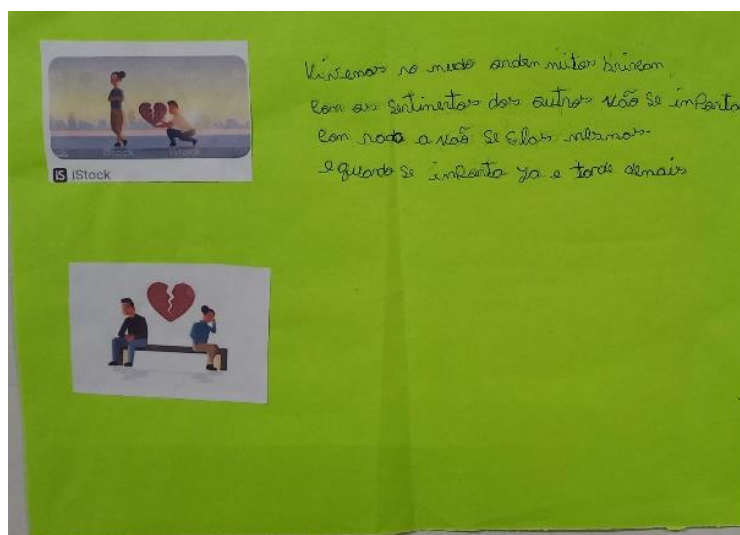 iStock
Vivemos no mudo onden muitos brincan
con os sentimentos dos outros não se inporta
con nada a não se elas mesmas.
e quando se inporta ja e tarde demais